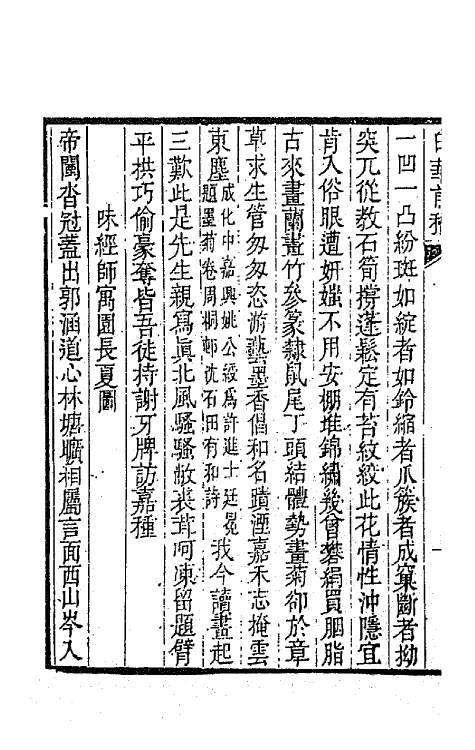 白華前稿
一凹一凸紛斑如綻者如鈴縮者爪簇者成窠斷者拗
突兀從教石筍撐蓬鬆定有苔紋絞此花情性沖隱宜
肯入俗眼遭妍媸不用安棚堆錦繡幾曾礬絹買胭脂
古來畫蘭畫竹參篆隸鼠尾丁頭結體勢畫菊卻於章
草求生管匆匆恣游藝墨香倡和名蹟湮嘉禾志掩雲
東塵成化中嘉興姚公綬為許進士廷冕題墨菊卷周桐邨沈石田有和詩我今讀畫起
三歎此是先生親寫眞北風騷騷敝裘茸呵凍留題臂
平拱巧偷豪奪皆吾徒持謝牙牌訪嘉種
味經師寓園長夏圖
帝闉沓冠蓋出郭涵道心林塘曠相屬言面西山岑入